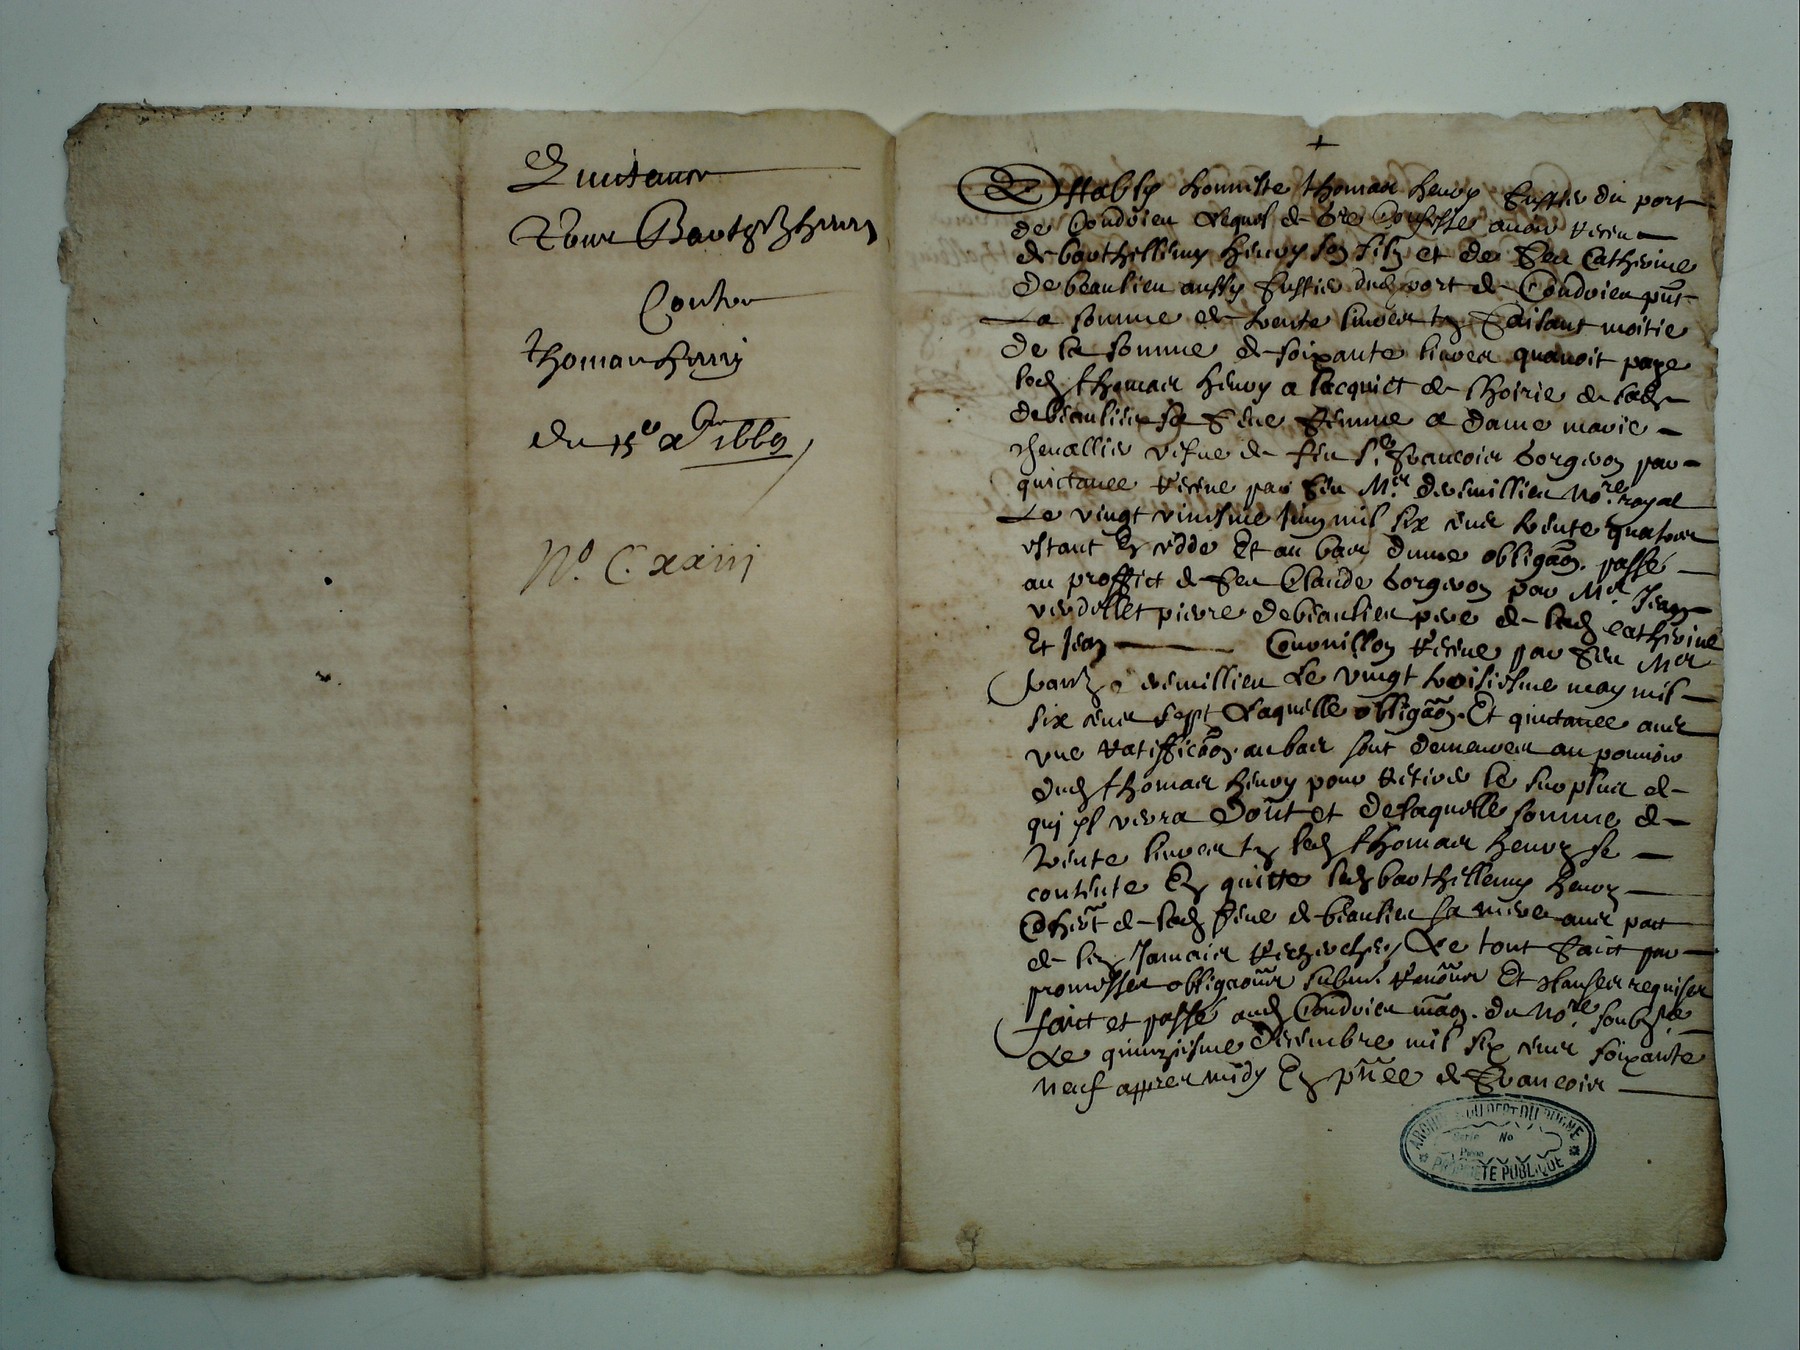 Quictance
Pour Barthy henry
Contre
Thomas henry
du 15e xbre 1669
No. C. xxiij
+
Estably honneste thomas henry du port
de Condrieu Lequel de gre Confesse avoir receu
de barthellemy henry son filz et de feu Catherine
de beaulieu aussy dud port de Condrieu pnt
La somme de trente livres tz faisant moitie
de la somme de soixante livres quavoit paye
led thomas henry a lacquict de lhoirie de lad
debeaulieu sa feue femme a dame marie
chevallier vefve de feu sr francois Sorgeron par
quictance receue par feu Mr. devemillieu Nore. royal
Le vingt uniesme Juin mil six cens trente quatre
estant En cedde Et au bas dune obligaon. passe
au proffict de feu Claude Sorgeron par Mr. Jean
verdellet pierre debeaulieu pere de lad catherine
Et Jean Cornillon receue par feu Mr
devemillieu Le vingt troisiesme may mil
six cens sept Laquelle obligaon. Et quictance avec
une rattifficaon. au bas sont demeures au pouvoir
dud thomas henry pour retirer le surplus de
qui il verra Dont et de laquelle somme de
trente livres tz led thomas henry se
contente En quitte led barthellemy henry
de lad feue de beaulieu sa mere avec pact
de Jamais rechercher, Le tout faict par
promesses obligaons submi. renons Et clauses requises
faict et passe aud Condrieu maon. du Nore. soubzne
Le quinziesme decembre mil six cens soixante
neuf appres midy En pnce de francois
ARCHIVES DU DEPT DU RHONE
Serie No
Piece
PROPRIETE PUBLIQUE